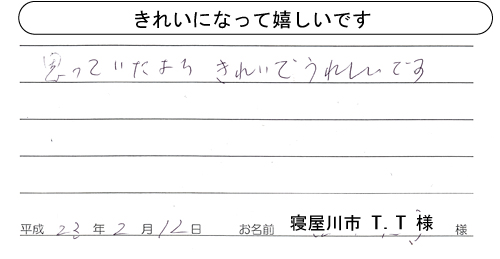 きれいになって嬉しいです
思っていたより きれいでうれしいです
平成 23 年 2 月 12 日 お名前 寝屋川市 T.T 様 様